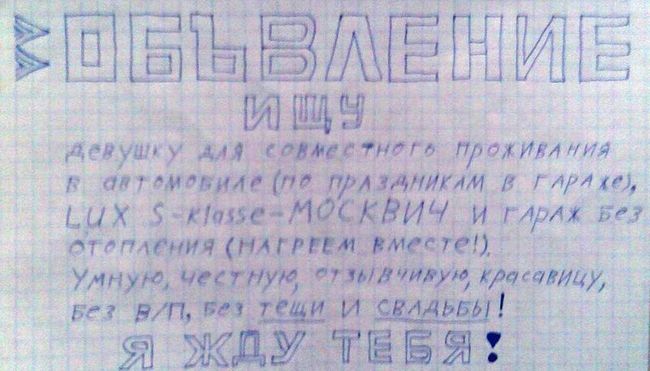 ОБЪВЛЕНИЕ
ИЩУ
девушку для совместного проживания
в автомобиле (по праздникам в гараже),
LUX S-klasse-МОСКВИЧ и гараж без
отопления (нагреем вместе!).
Умную, честную, отзывчивую, красавицу,
без в/п, без тещи и свадьбы!
Я ЖДУ ТЕБЯ!